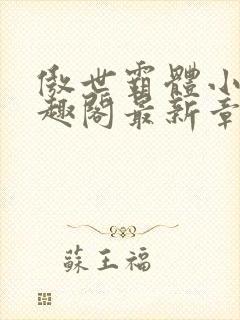 傲世霸體小
趣閣最新章
蘇王福